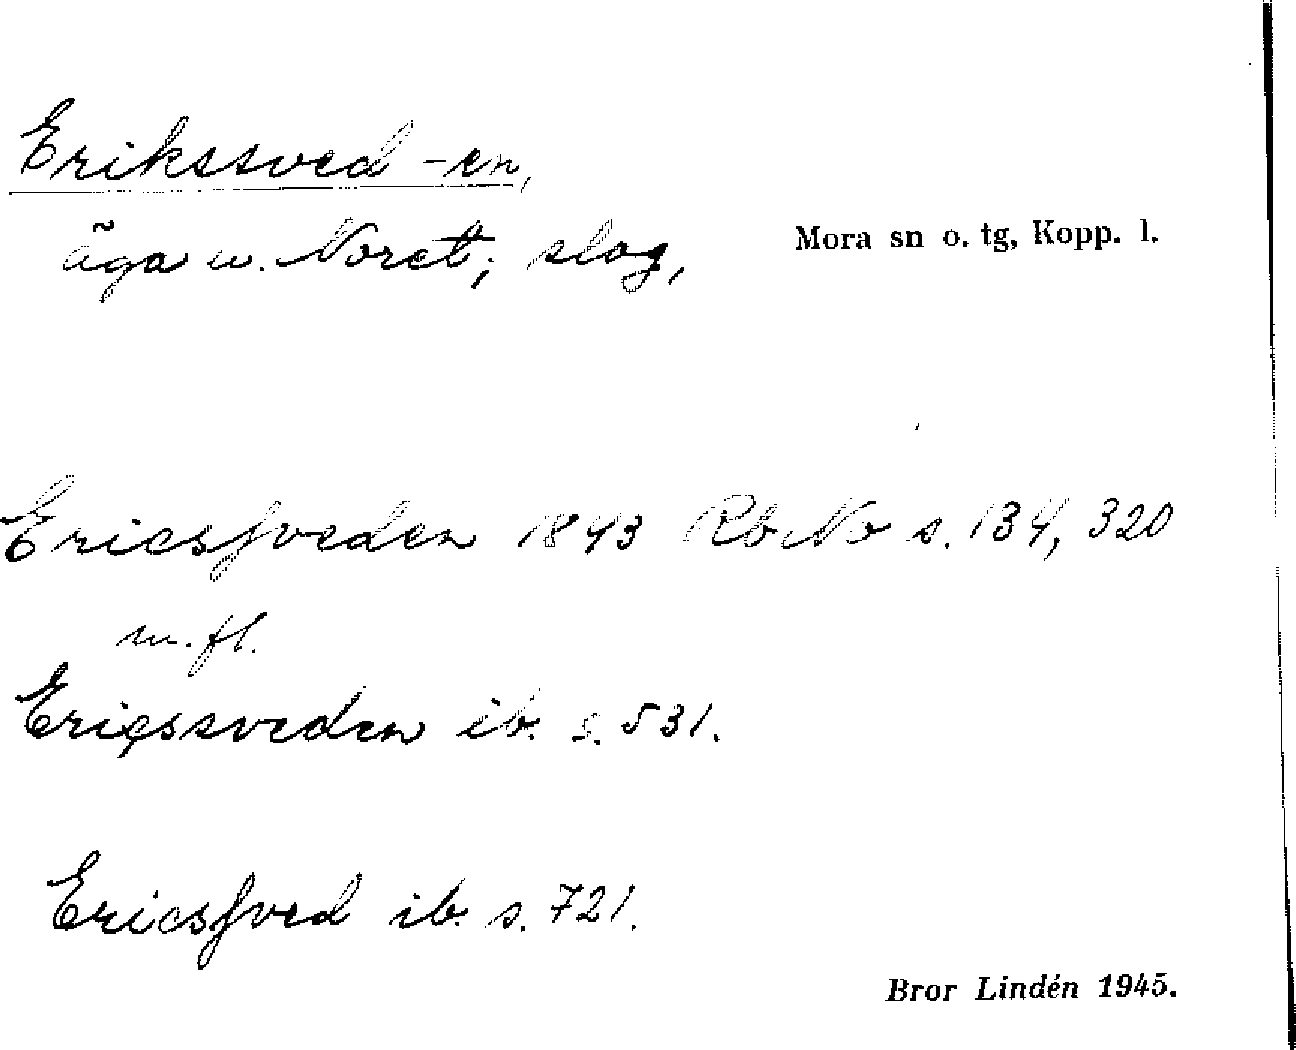 Erikssved -en,
äga u. Noret; slog,
Mora sn o. tg, Kopp. l.
Ericsſveden 1843 Rb No s. 134, 320
m. fl.
Ericssveden ib. s. 531.
Ericsſved ib. s. 721.
Bror Lindén 1945.